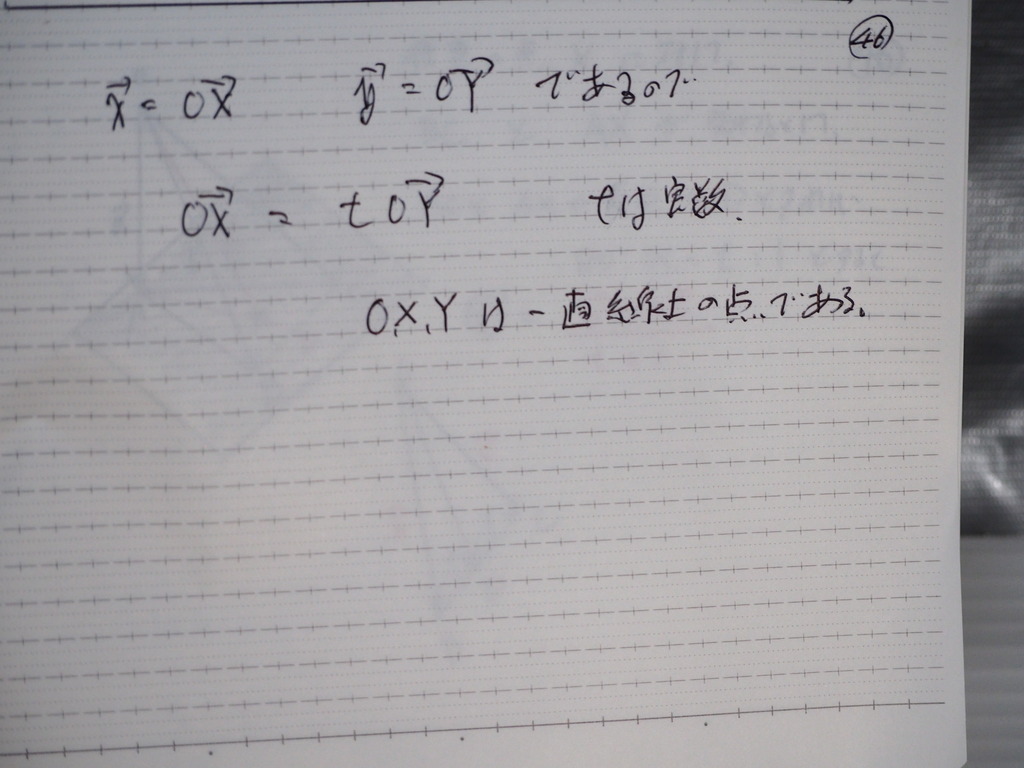 ㊻
x⃗ = OX⃗ y⃗ = OY⃗ であるので
OX⃗ = t OY⃗ tは実数.
O,X,Y は一直線上の点である。